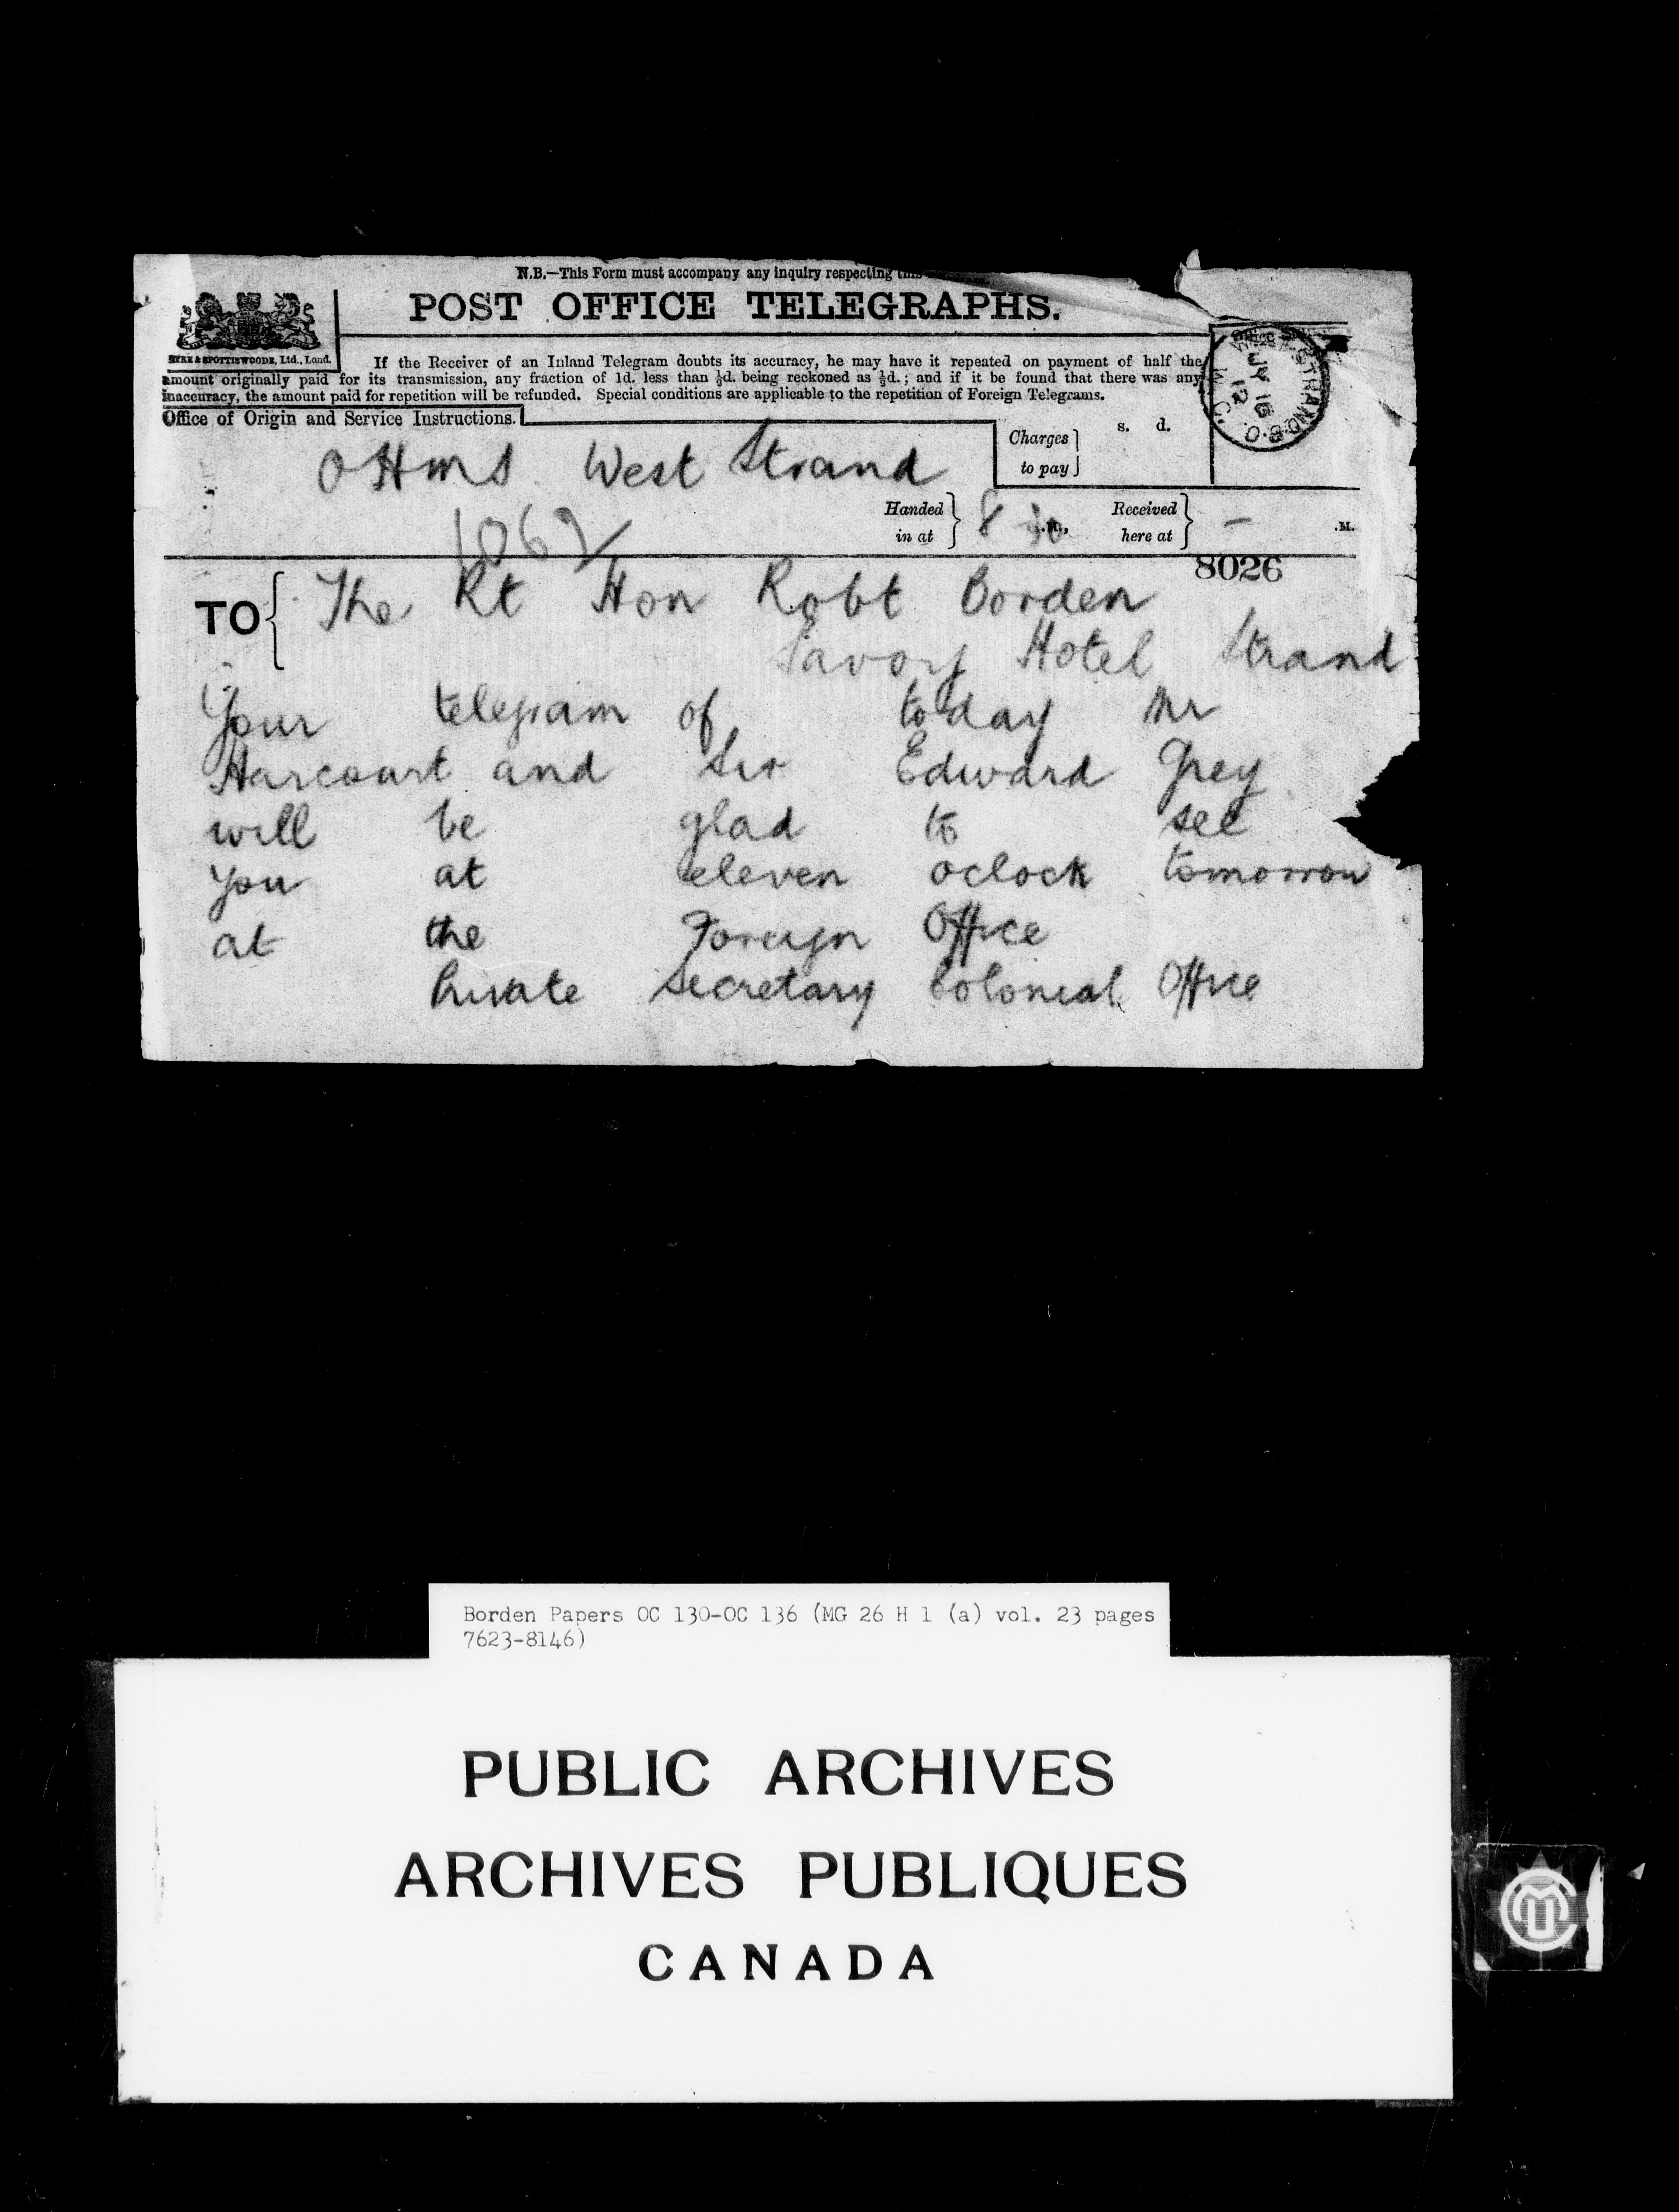 N.B.—This Form must accompany any inquiry respecting this
POST OFFICE TELEGRAPHS.
EYRE & SPOTTISWOODE, Ltd., Lond.
If the Receiver of an Inland Telegram doubts its accuracy, he may have it repeated on payment of half the
amount originally paid for its transmission, any fraction of 1d. less than ½d. being reckoned as ½d.; and if it be found that there was any
inaccuracy, the amount paid for repetition will be refunded. Special conditions are applicable to the repetition of Foreign Telegrams.
JY 16
12
Office of Origin and Service Instructions.
Charges to pay
s. d.
OHMS West Strand
Handed in at 8 30 Received here at — .M.
8026
TO The Rt Hon Robt Borden
Savoy Hotel Strand
Your telegram of today Mr
Harcourt and Sir Edward Grey
will be glad to see
you at eleven oclock tomorrow
at the Foreign Office
Private Secretary Colonial Office
Borden Papers OC 130-OC 136 (MG 26 H 1 (a) vol. 23 pages
7623-8146)
PUBLIC ARCHIVES
ARCHIVES PUBLIQUES
CANADA